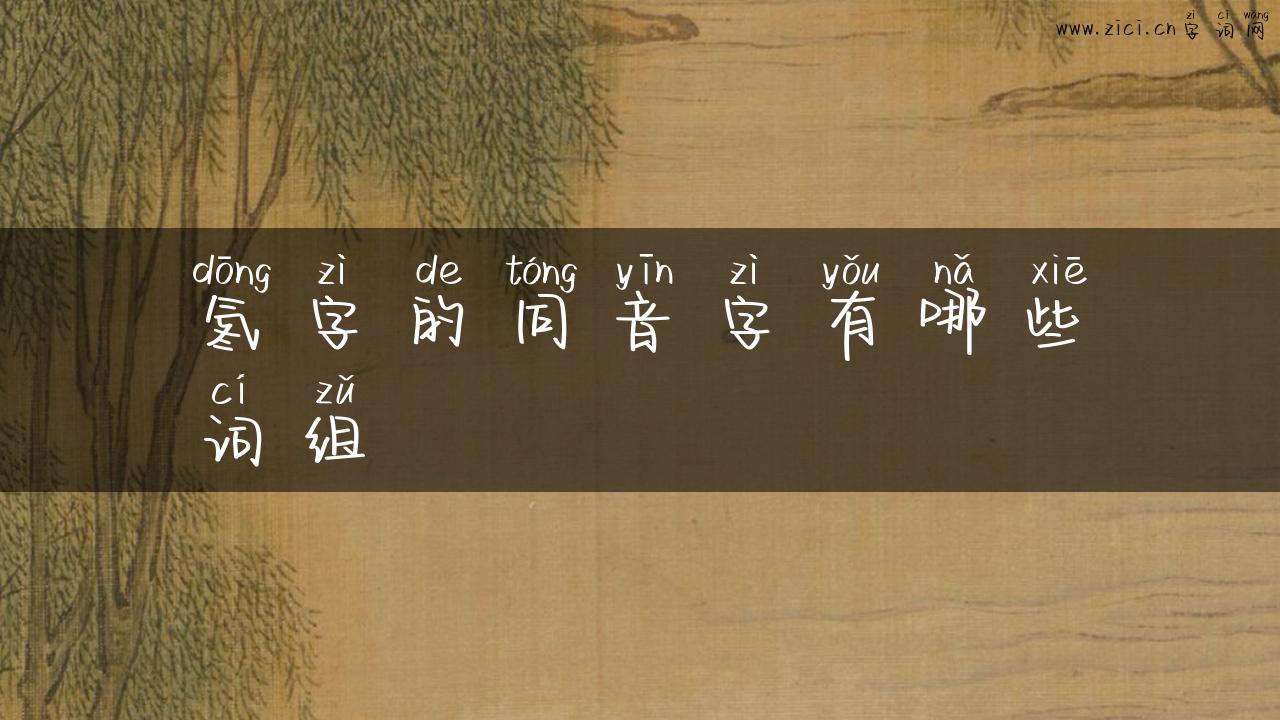 zì cí wǎng
www.zici.cn 字词网
dōng zì de tóng yīn zì yǒu nǎ xiē
氡字的同音字有哪些
cí zǔ
词组